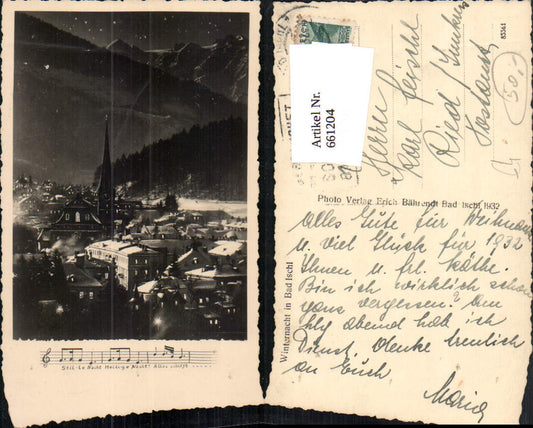 Stille Nacht Heilige Nacht! Alles schläft
Artikel Nr.
661204
85341
50,-
Herrn
Karl
Ried
Postamt
Photo Verlag Erich Bährendt Bad Ischl 1932
Winternacht in Bad Ischl
Alles Gute für Weihnacht
u. viel Glück für 1932
Ihnen u. frl. Käthe.
Bin ich wirklich schon
ganz vergessen? Am
hlg abend hab ich
Dienst, denke treulich
an Euch.
Maria